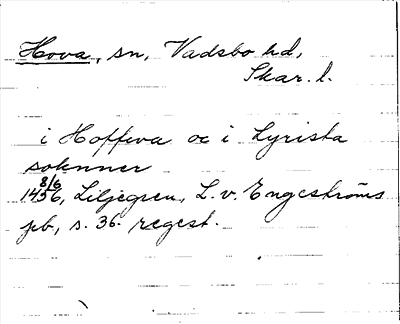 Hova, sn, Vadsbo hd,
Skar. l.
i Hoffwa oc i Lyrista
soknner
8/6
1456, Liljegren, L. v. Engeströms
peb, s. 36. regest.